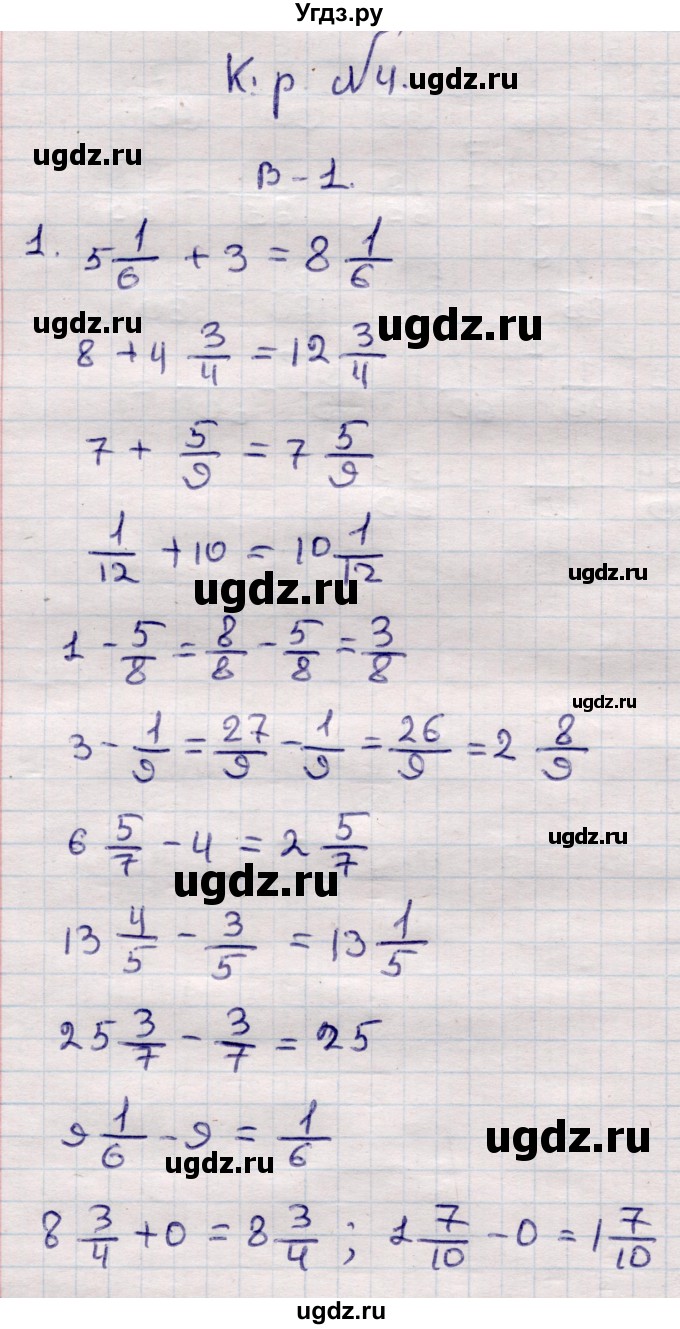 Угдз.ру
К. р. №4. ugdz.ru
ugdz.ru
В-1.
1. 5 1/6 + 3 = 8 1/6
ugdz.ru ugdz.ru
8 + 4 3/4 = 12 3/4
7 + 5/9 = 7 5/9
1/12 + 10 = 10 1/12
ugdz.ru ugdz.ru
1 - 5/8 = 8/8 - 5/8 = 3/8
ugdz.ru
3 - 1/9 = 27/9 - 1/9 = 26/9 = 2 8/9
6 5/7 - 4 = 2 5/7
ugdz.ru
ugdz.ru
13 4/5 - 3/5 = 13 1/5
25 3/7 - 3/7 = 25
9 1/6 - 9 = 1/6
ugdz.ru ugdz.ru
8 3/4 + 0 = 8 3/4 ; 1 7/10 - 0 = 1 7/10
ugdz.ru